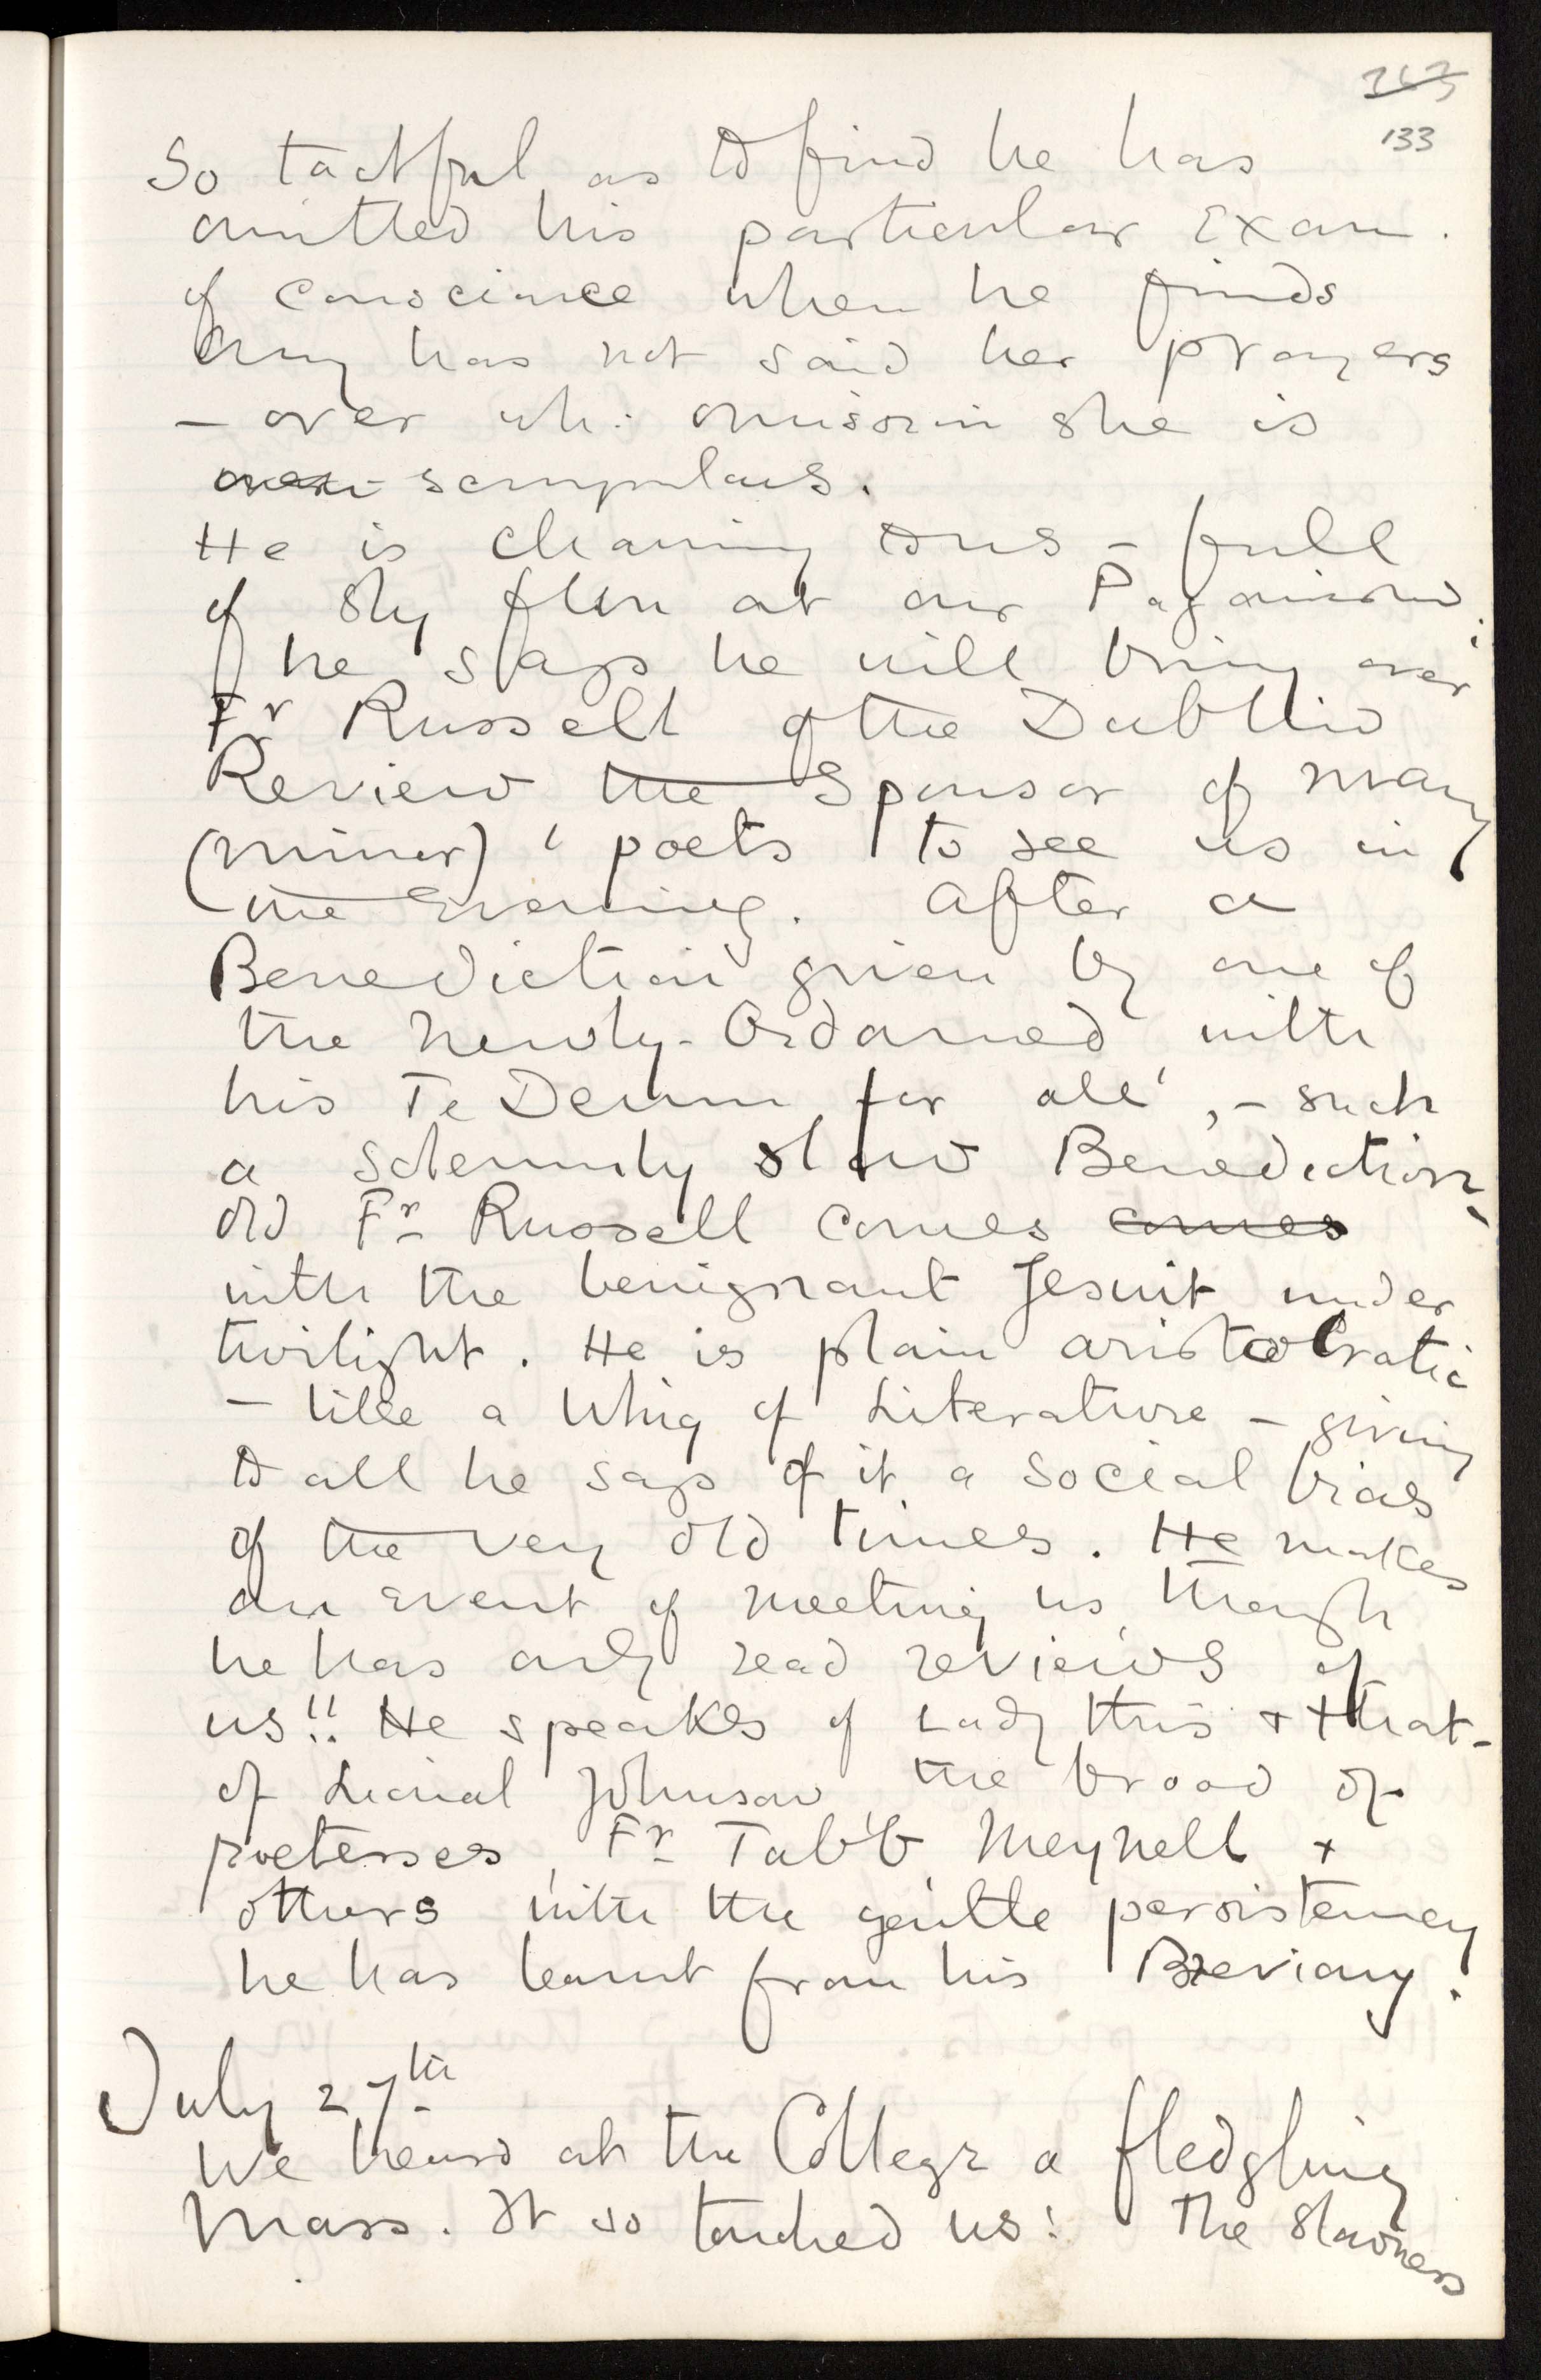 263
133
So tactful as to find he has
omitted his particular Exam.
of conscience when he finds
Amy has not said her prayers
— over wh: omission she is
over-scrupulous.
He is charming to us — full
of sly fun at our Paganism.
he says he will bring over
Fr Russell of the Dublin
Review the Sponsor of many
(minor) poets to see us in
the Evening. After a
Benediction given by one of
the newly-Ordained with
his Te Deum for all, — such
a solemnly slow Benediction,
old Fr Russell comes comes
with the benignant Jesuit under
twilight. He is plain aristocratic
— like a Whig of Literature — giving
to all he says of it a social bias
of the very old times. He makes
an event of meeting us though
he has only read reviews of
us!! He speaks of Lady this + that —
of Lionel Johnson the brood of
poetesses, Fr Tabb, Meynell +
others with the gentle persistency
he has learnt from his Breviary.
July 27th
We heard at the College a fledgling
Mass. It so touched us: The slowness